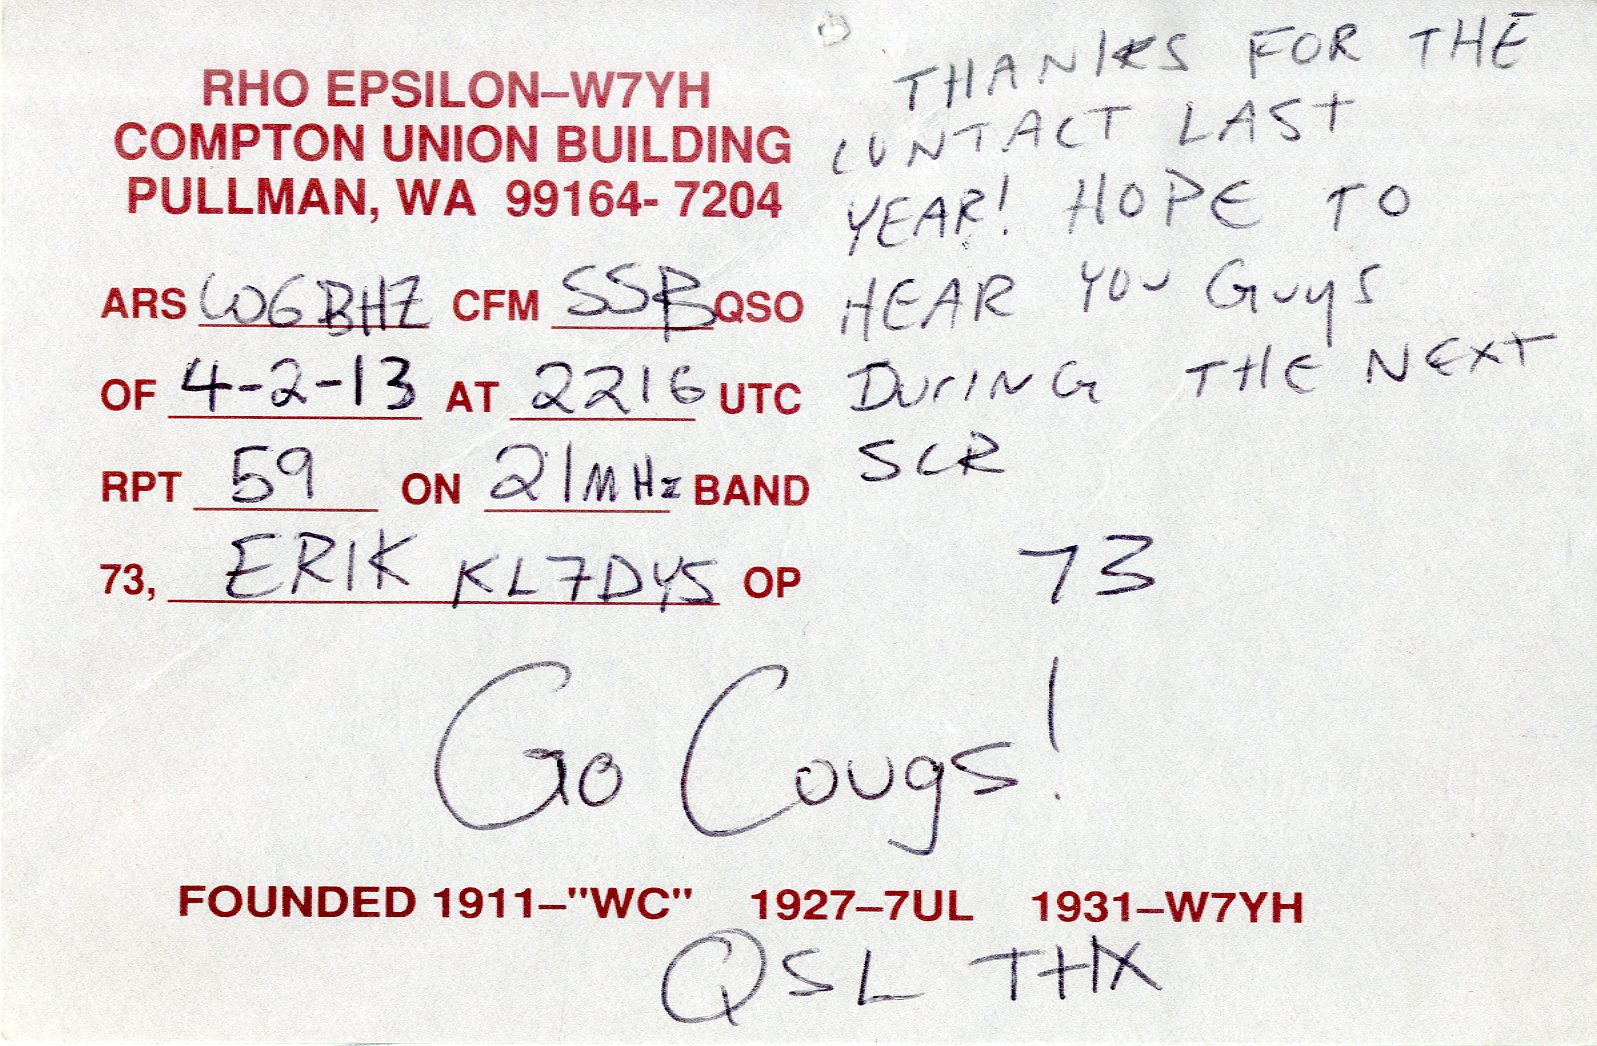 RHO EPSILON–W7YH
COMPTON UNION BUILDING
PULLMAN, WA 99164- 7204
ARS W6BHZ CFM SSB QSO
OF 4-2-13 AT 2216 UTC
RPT 59 ON 21MHz BAND
73, ERIK KL7DYS OP
THANKS FOR THE
CONTACT LAST
YEAR! HOPE TO
HEAR YOU GUYS
DURING THE NEXT
SCR
73
Go Cougs!
FOUNDED 1911–"WC" 1927–7UL 1931–W7YH
QSL THX